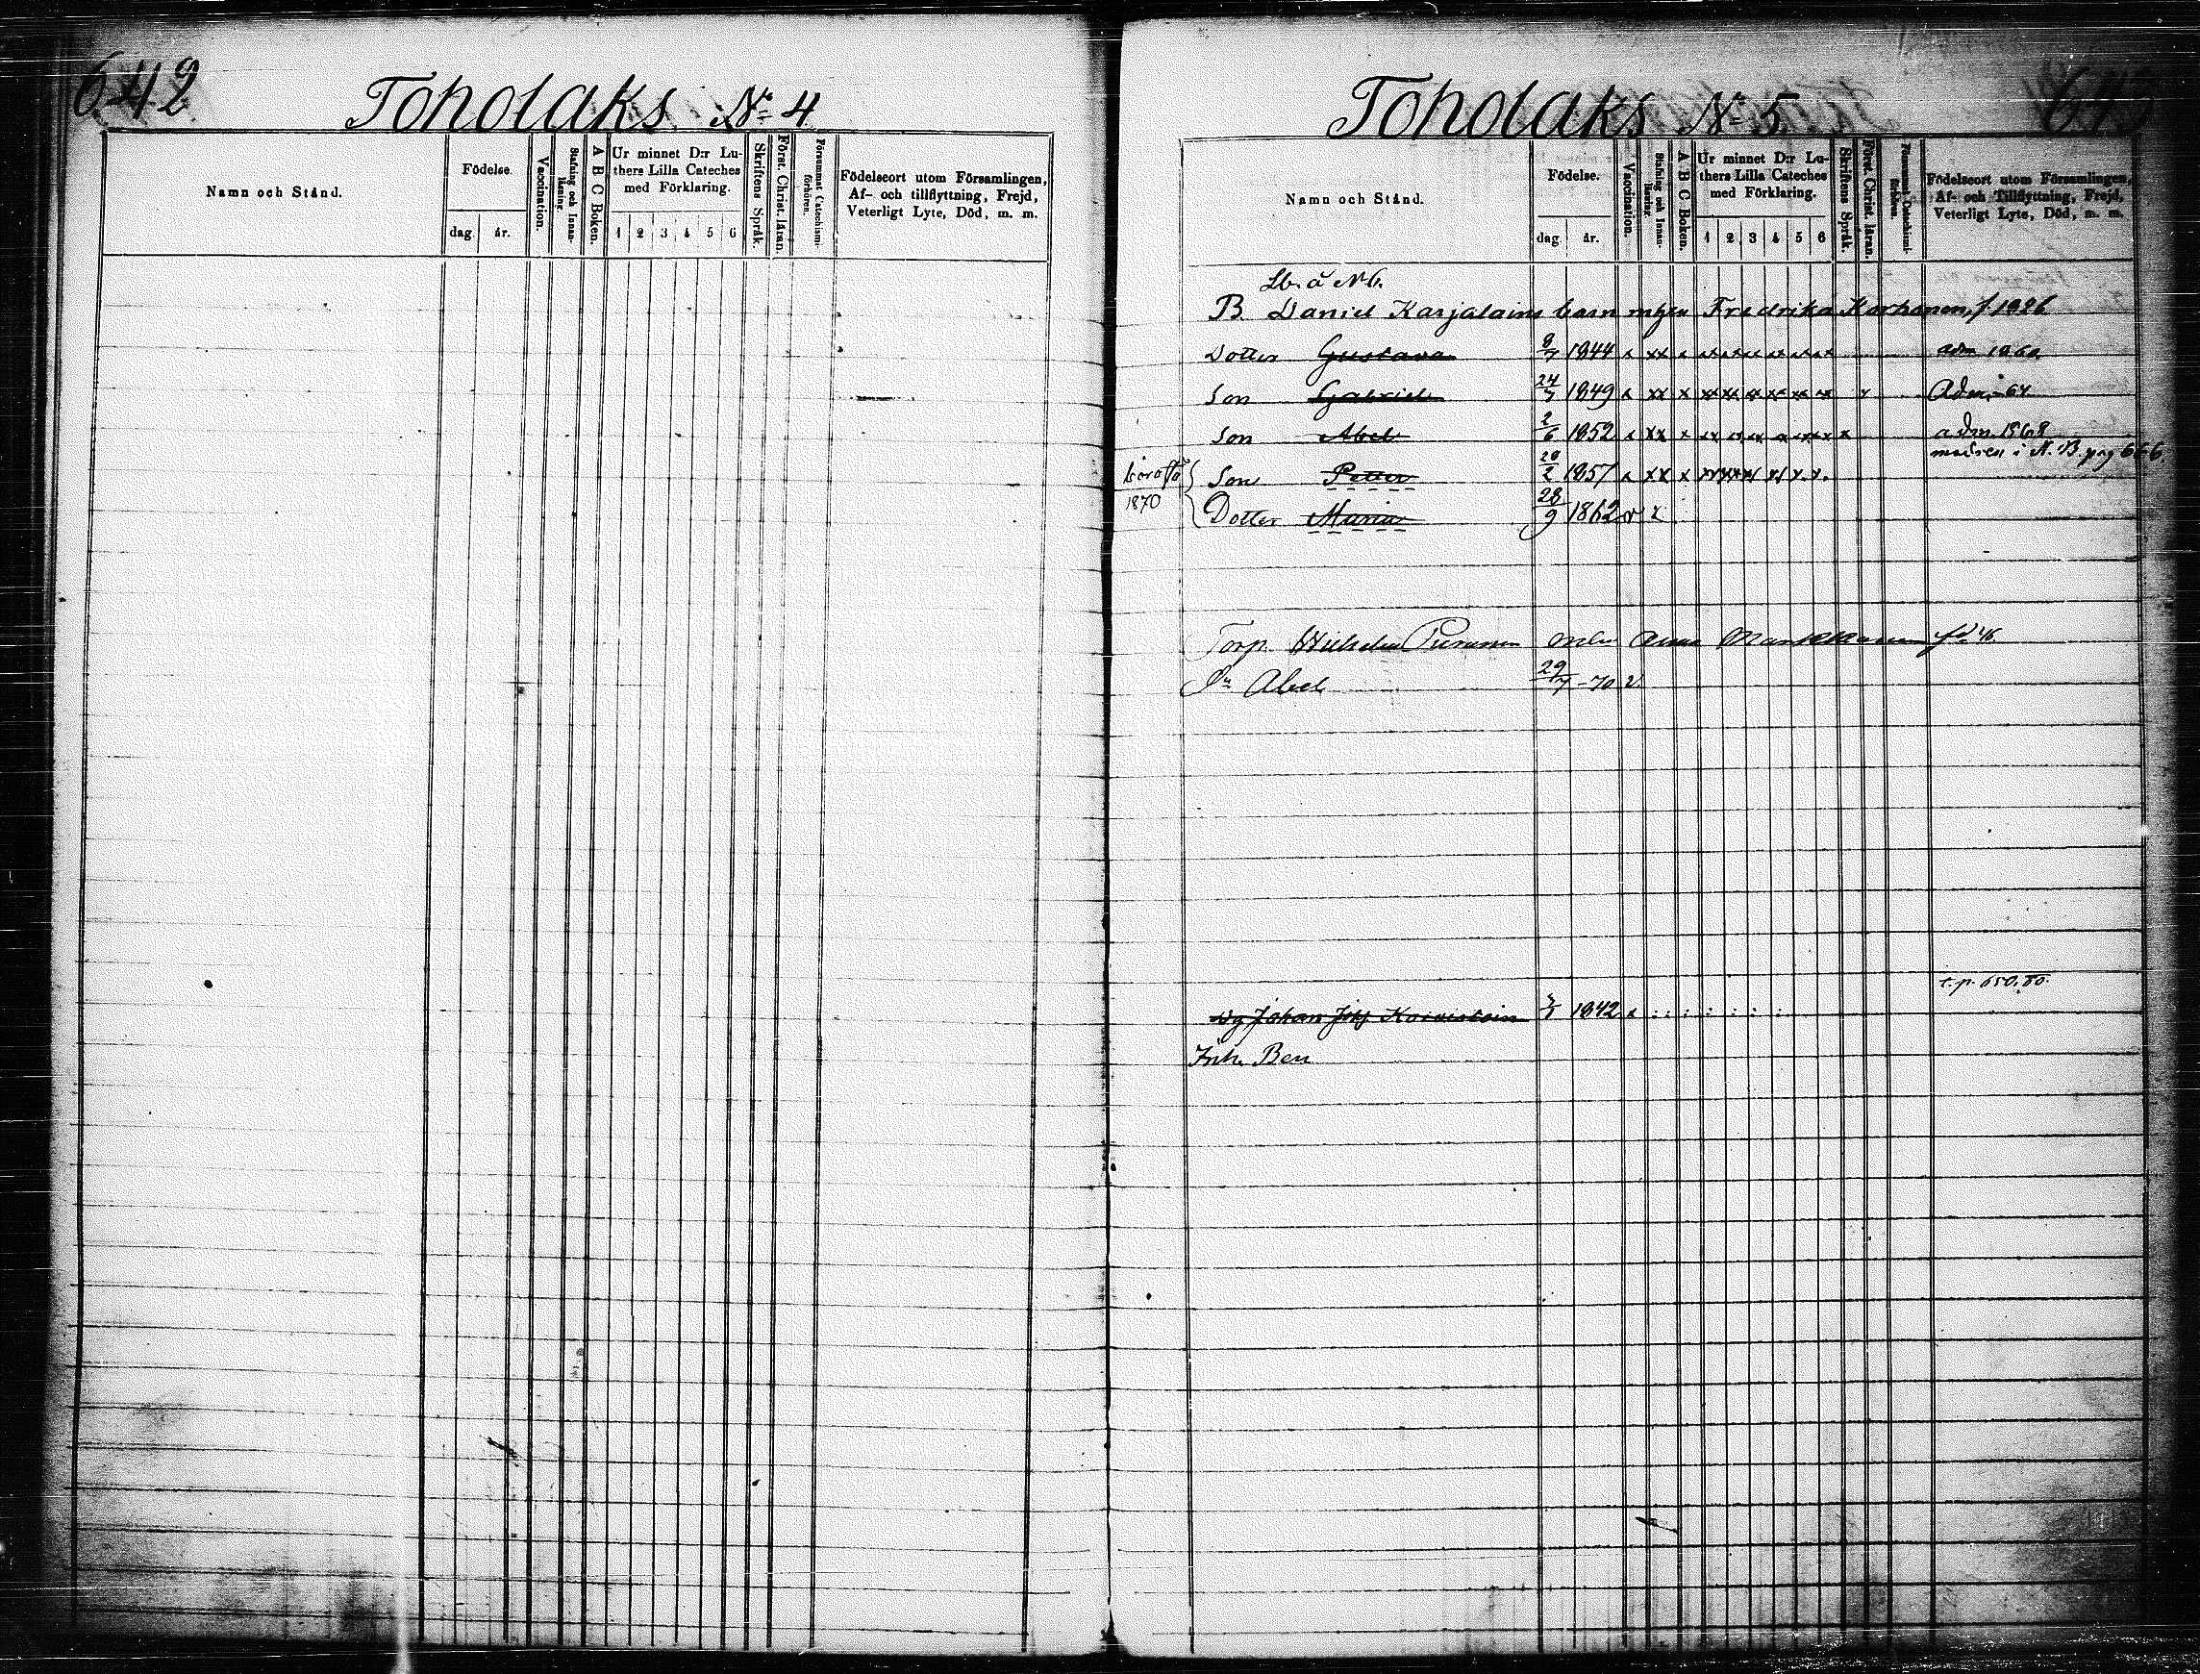 642
Toholaks № 4
Namn och Stånd.
Födelse.
dag.
år.
Vaccination.
Stafning och Innan-
läsning.
A B C Boken.
Ur minnet D:r Lu-
thers Lilla Cateches
med Förklaring.
1 2 3 4 5 6
Skriftens Språk.
Först. Christ. läran.
Försummat Catechismi-
förhören.
Födelseort utom Församlingen,
Af- och tillflyttning, Frejd,
Veterligt Lyte, Död, m. m.
Toholaks № 5
Namn och Stånd.
Födelse.
dag
år.
Vaccination.
Stafning och Innan-
läsning.
A B C Boken.
Ur minnet D:r Lu-
thers Lilla Cateches
med Förklaring.
1 2 3 4 5 6
Skriftens Språk.
Först. Christ. läran.
Försummat Catechismi-
förhören.
Födelseort utom Församlingen,
Af- och Tillflyttning, Frejd,
Veterligt Lyte, Död, m. m.
Lb. å N 6.
B. Daniel Karjalains barn m hu Fredrika Korhonen, f. 1826
Dotter Gustava 8/7 1844 adm 1860
Son Gabriel 24/3 1849 Adm. 64
Son Abel 2/6 1852 adm. 1868
modren i N. B pag 666
Son Petter 20/2 1857
1870
Dotter Maria 28/9 1862
Torp. Wilhelm Purunen Anna f. 46
Sn Abel 29/7 - 70
t. p. 650. 80.
Dg Johan Jos. Koivistoin 1842